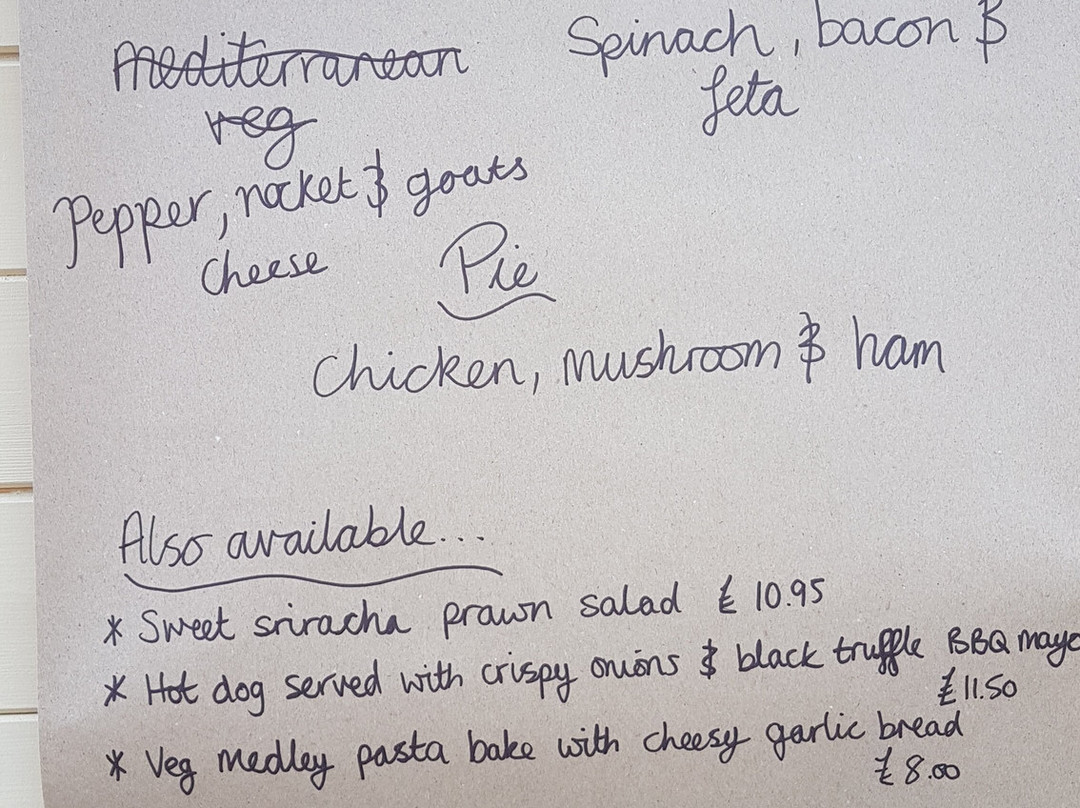 Mediterranean
veg
Spinach, bacon &
feta
Pepper, rocket & goats
cheese
Pie
Chicken, mushroom & ham
Also available...
* Sweet sriracha prawn salad £10.95
* Hot dog served with crispy onions & black truffle BBQ mayo
£11.50
* Veg medley pasta bake with cheesy garlic bread
£8.00